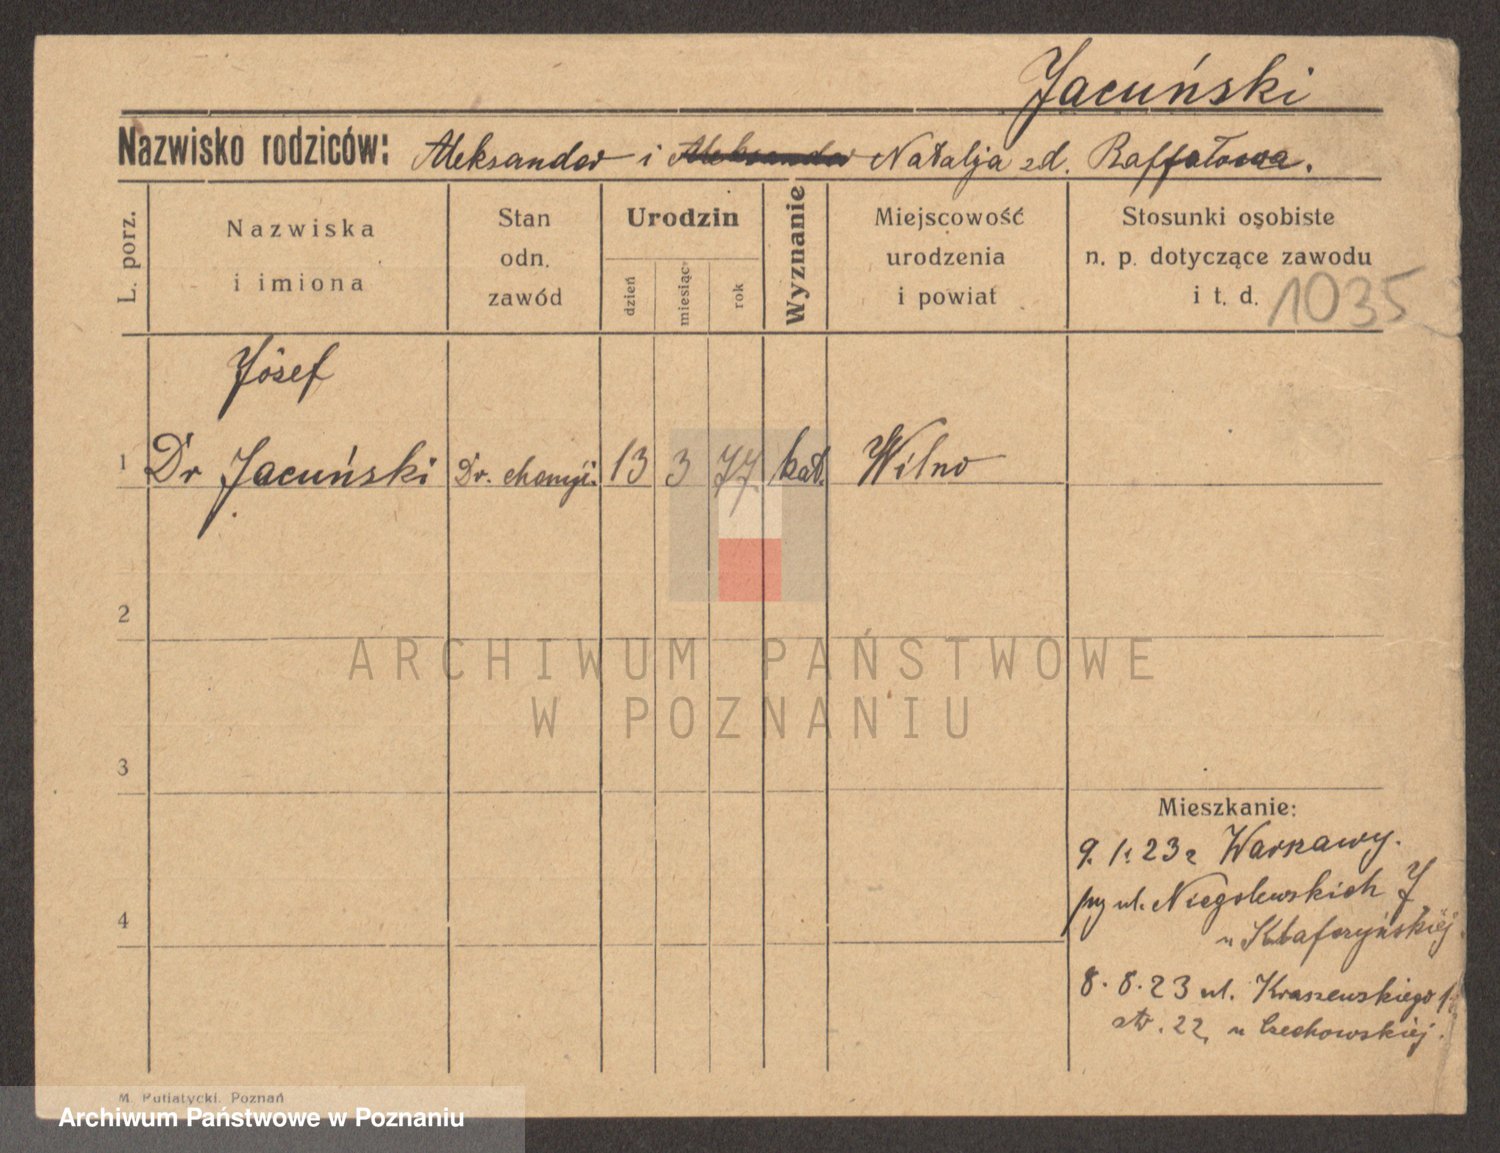 Jacuński
Nazwisko rodziców: Aleksander i Aleksander Natalja zd. Raffałowa.
L. porz.
Nazwiska
i imiona
Stan
odn.
zawód
Urodzin
dzień
miesiąc
rok
Wyznanie
Miejscowość
urodzenia
i powiat
Stosunki osobiste
n. p. dotyczące zawodu
i t. d. 1035
Józef
1 Dr Jacuński Dr. chemji. 13 3 77. kat. Wilno
2
ARCHIWUM PAŃSTWOWE
W POZNANIU
3
Mieszkanie:
9. 1. 23 z Warszawy.
przy ul. Niegolewskich 7
4
8. 8. 23 ul. Kraszewskiego
22, u Czechowskiej.
M. Putiatycki, Poznań
Archiwum Państwowe w Poznaniu